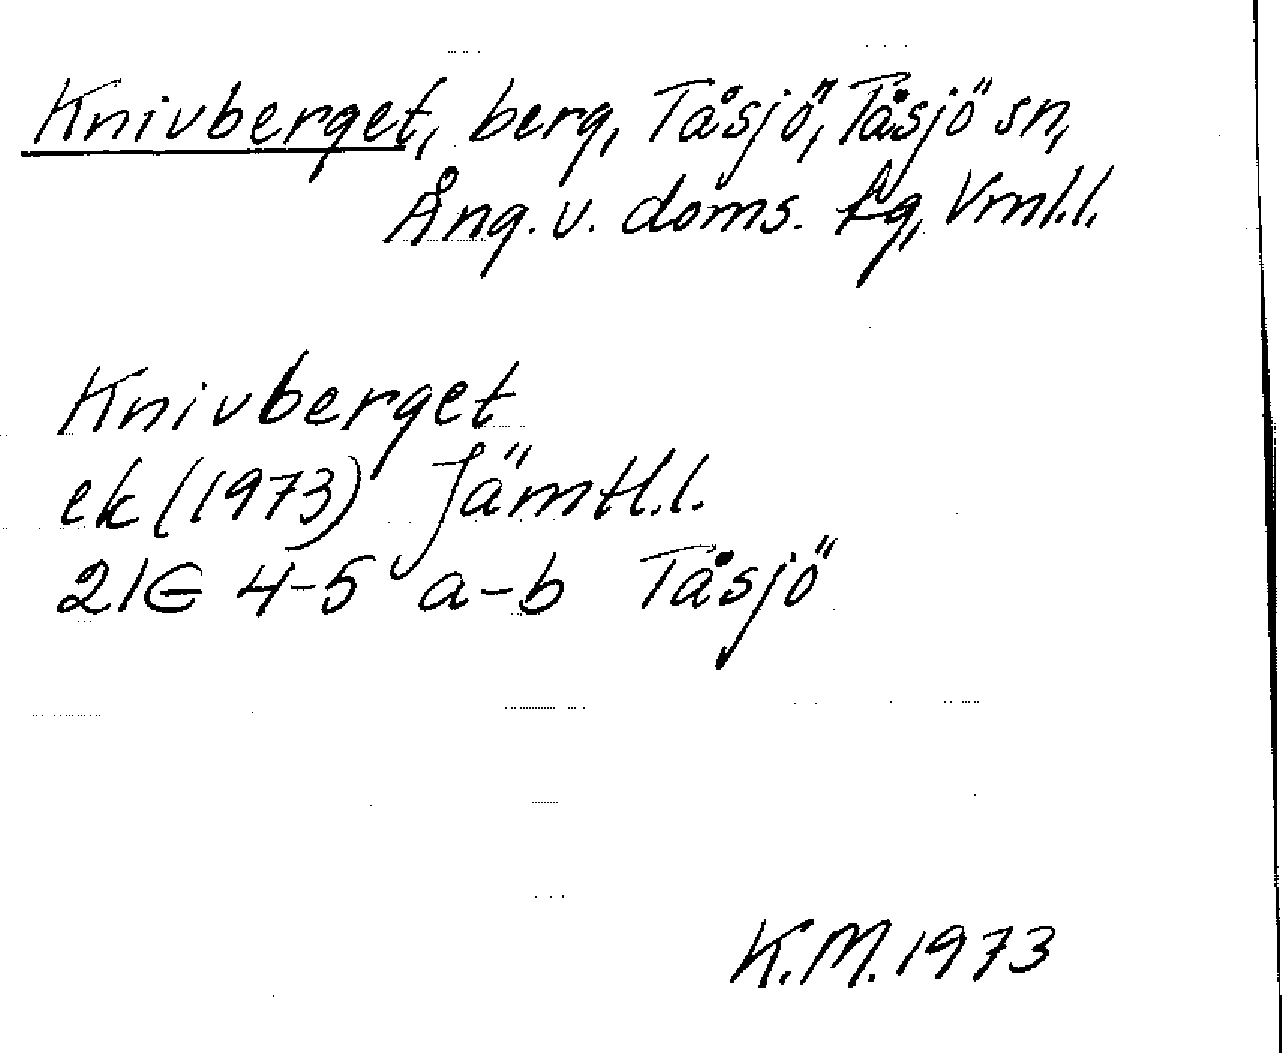 Knivberget, berg, Tåsjö, Tåsjö sn,
Ång. v. doms. fg, Vrnl.l.
Knivberget
ek (1973) Jämtl.l.
21G 4-5 a-b Tåsjö
K.M. 1973